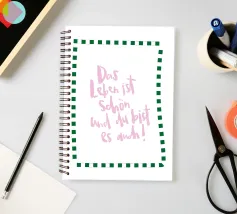 Das
Leben ist
schön
und du bist
es auch!